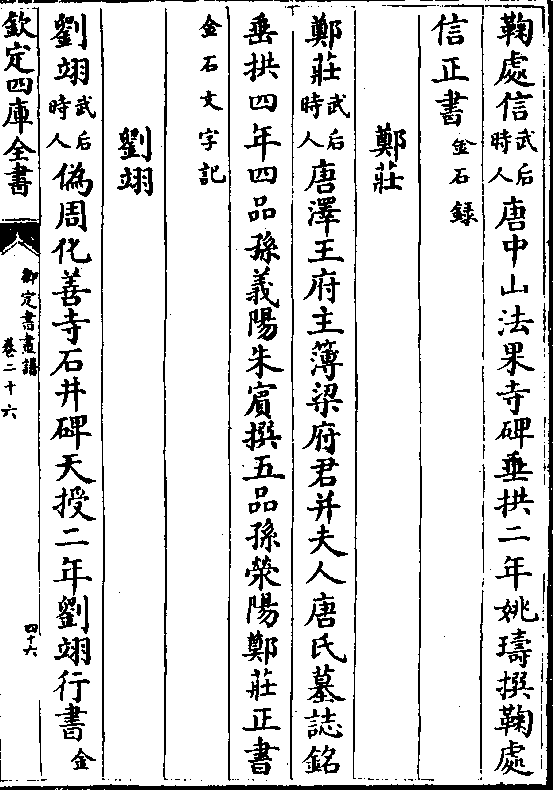 鞠處信武后時人唐中山法果寺碑垂拱二年姚璹撰鞠處
信正書金石録
鄭莊
鄭莊武后時人唐澤王府主簿梁府君并夫人唐氏墓誌銘
垂拱四年四品孫義陽朱賓撰五品孫滎陽鄭莊正書
金石文字記
劉翊
劉翊武后時人偽周化善寺石井碑天授二年劉翊行書金
欽定四庫全書
御定書畫譜
卷二十六
四十六